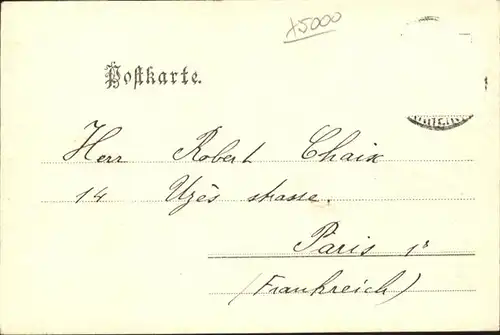 x5000
Postkarte.
Herr Robert Chaix
14 Uzès strasse.
Paris 1r
(Frankreich)